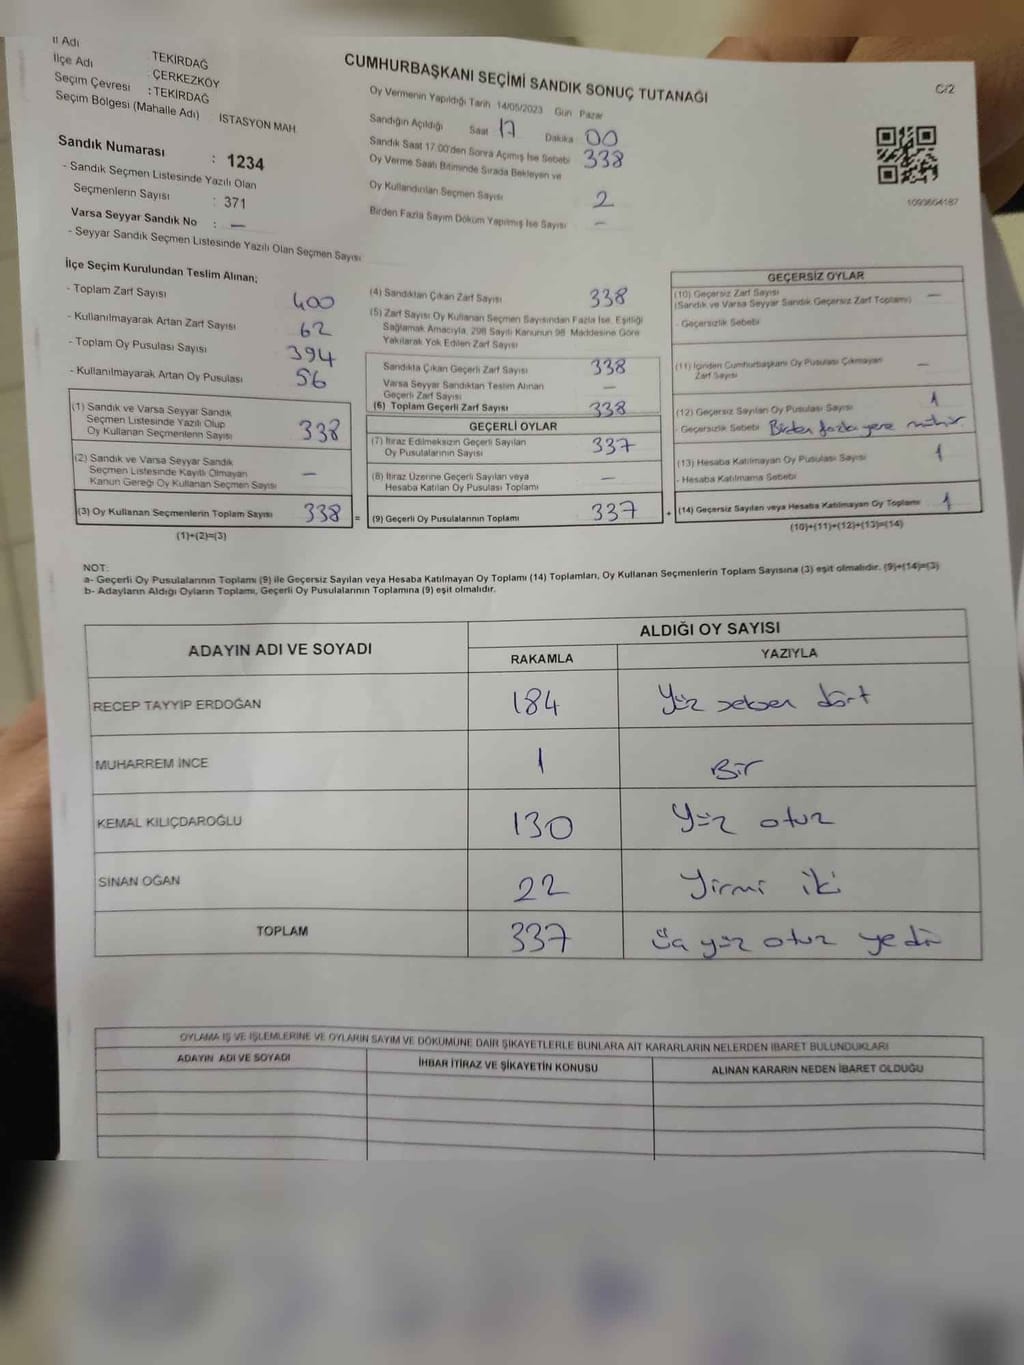 İl Adı
İlçe Adı : TEKİRDAĞ
Seçim Çevresi ÇERKEZKÖY
Seçim Bölgesi (Mahalle Adı) : TEKİRDAĞ
İSTASYON MAH.
CUMHURBAŞKANI SEÇİMİ SANDIK SONUÇ TUTANAĞI
C/2
Oy Vermenin Yapıldığı Tarih 14/05/2023 Gün Pazar
Sandığın Açıldığı Saat 17 Dakika 00
Sandık Saat 17.00'den Sonra Açılmış İse Sebebi 338
Oy Verme Saati Bitiminde Sırada Bekleyen ve
Oy Kullandırılan Seçmen Sayısı 2
Birden Fazla Sayım Döküm Yapılmış İse Sayısı —
1093604187
Sandık Numarası : 1234
- Sandık Seçmen Listesinde Yazılı Olan
Seçmenlerin Sayısı : 371
Varsa Seyyar Sandık No : —
- Seyyar Sandık Seçmen Listesinde Yazılı Olan Seçmen Sayısı
İlçe Seçim Kurulundan Teslim Alınan;
- Toplam Zarf Sayısı 400
- Kullanılmayarak Artan Zarf Sayısı 62
- Toplam Oy Pusulası Sayısı 394
- Kullanılmayarak Artan Oy Pusulası 56
(1) Sandık ve Varsa Seyyar Sandık
Seçmen Listesinde Yazılı Olup
Oy Kullanan Seçmenlerin Sayısı 338
(2) Sandık ve Varsa Seyyar Sandık
Seçmen Listesinde Kayıtlı Olmayan
Kanun Gereği Oy Kullanan Seçmen Sayısı —
(3) Oy Kullanan Seçmenlerin Toplam Sayısı 338 =
(1)+(2)=(3)
(4) Sandıktan Çıkan Zarf Sayısı 338
(5) Zarf Sayısı Oy Kullanan Seçmen Sayısından Fazla İse, Eşitliği
Sağlamak Amacıyla, 298 Sayılı Kanunun 98. Maddesine Göre
Yakılarak Yok Edilen Zarf Sayısı
Sandıkta Çıkan Geçerli Zarf Sayısı 338
Varsa Seyyar Sandıktan Teslim Alınan
Geçerli Zarf Sayısı —
(6) Toplam Geçerli Zarf Sayısı 338
GEÇERLİ OYLAR
(7) İtiraz Edilmeksizin Geçerli Sayılan
Oy Pusulalarının Sayısı 337
(8) İtiraz Üzerine Geçerli Sayılan veya
Hesaba Katılan Oy Pusulası Toplamı —
(9) Geçerli Oy Pusulalarının Toplamı 337 +
GEÇERSİZ OYLAR
(10) Geçersiz Zarf Sayısı —
(Sandık ve Varsa Seyyar Sandık Geçersiz Zarf Toplamı)
- Geçersizlik Sebebi
(11) İçinden Cumhurbaşkanı Oy Pusulası Çıkmayan
Zarf Sayısı —
(12) Geçersiz Sayılan Oy Pusulası Sayısı 1
- Geçersizlik Sebebi Birden fazla yere mühür.
(13) Hesaba Katılmayan Oy Pusulası Sayısı 1
- Hesaba Katılmama Sebebi
(14) Geçersiz Sayılan veya Hesaba Katılmayan Oy Toplamı 1
(10)+(11)+(12)+(13)=(14)
NOT:
a- Geçerli Oy Pusulalarının Toplamı (9) ile Geçersiz Sayılan veya Hesaba Katılmayan Oy Toplamı (14) Toplamları, Oy Kullanan Seçmenlerin Toplam Sayısına (3) eşit olmalıdır. (9)+(14)=(3)
b- Adayların Aldığı Oyların Toplamı, Geçerli Oy Pusulalarının Toplamına (9) eşit olmalıdır.
ADAYIN ADI VE SOYADI
ALDIĞI OY SAYISI
RAKAMLA YAZIYLA
RECEP TAYYİP ERDOĞAN 184 Yüz seksen dört
MUHARREM İNCE 1 Bir
KEMAL KILIÇDAROĞLU 130 Yüz otuz
SİNAN OĞAN 22 Yirmi iki
TOPLAM 337 üç yüz otuz yedi
OYLAMA İŞ VE İŞLEMLERİNE VE OYLARIN SAYIM VE DÖKÜMÜNE DAİR ŞİKAYETLERLE BUNLARA AİT KARARLARIN NELERDEN İBARET BULUNDUKLARI
ADAYIN ADI VE SOYADI İHBAR İTİRAZ VE ŞİKAYETİN KONUSU ALINAN KARARIN NEDEN İBARET OLDUĞU